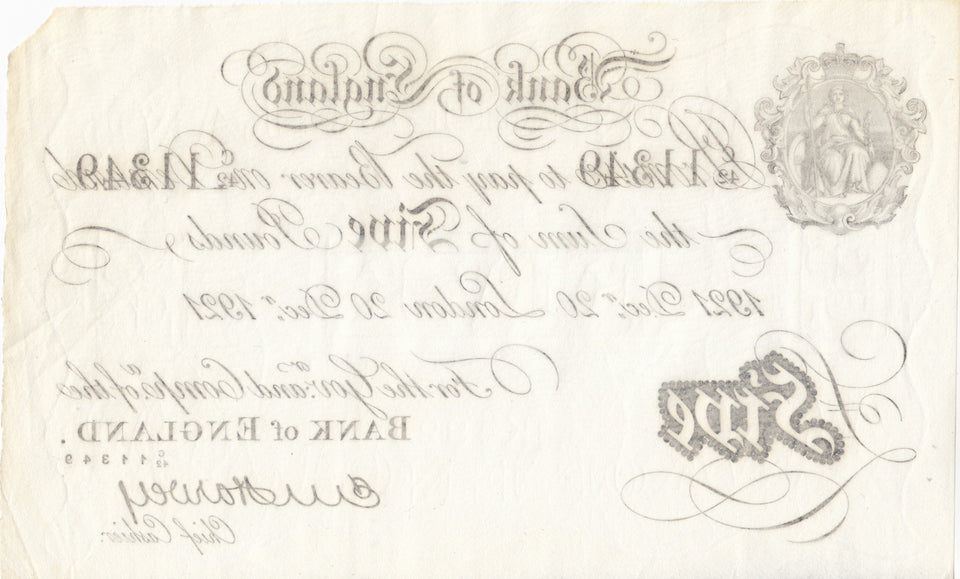 Bank of England
C/42 11349 to pay the Bearer on C/42 11349
the Sum of Five Pounds
1921 Decr. 20 London 20 Decr. 1921
For the Govr. and Compa. of the
BANK of ENGLAND.
C/42 11349
£Five
E M Harvey
Chief Cashier.